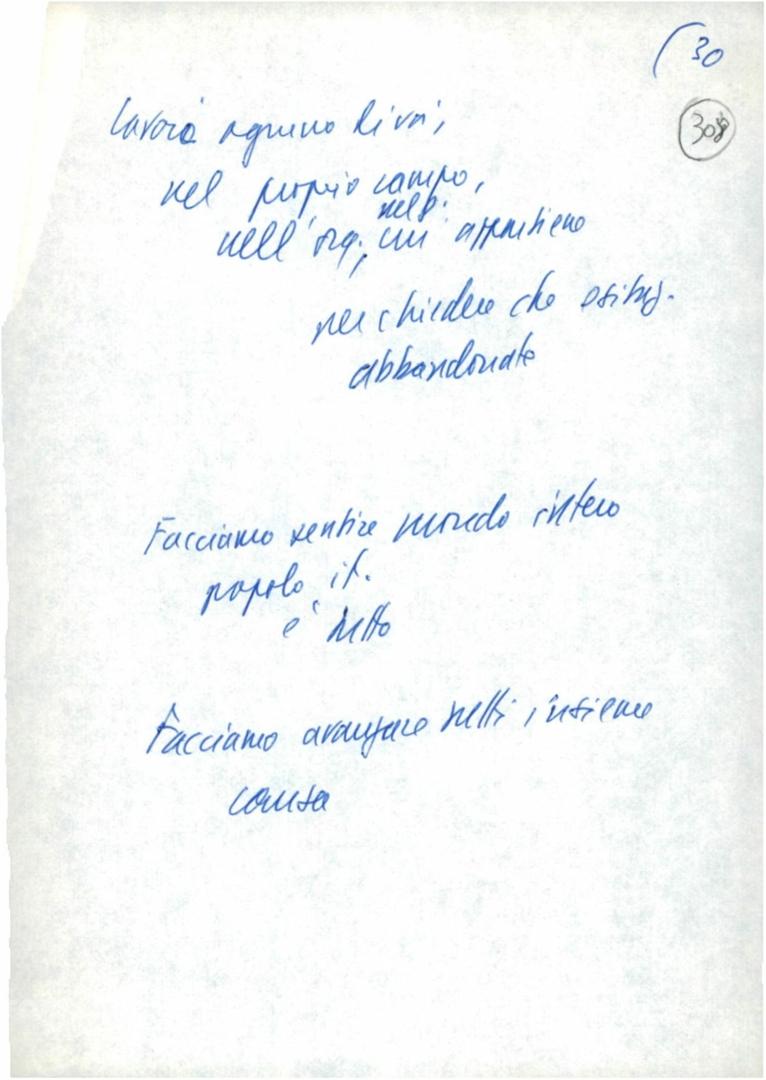 (30
308
lavori ognuno di voi,
nel proprio campo,
nell'org., cui appartiene
per chiedere che esitaz.
abbandonate
Facciamo sentire mondo intero
popolo it.
è tutto
Facciamo avanzare tutti insieme
causa